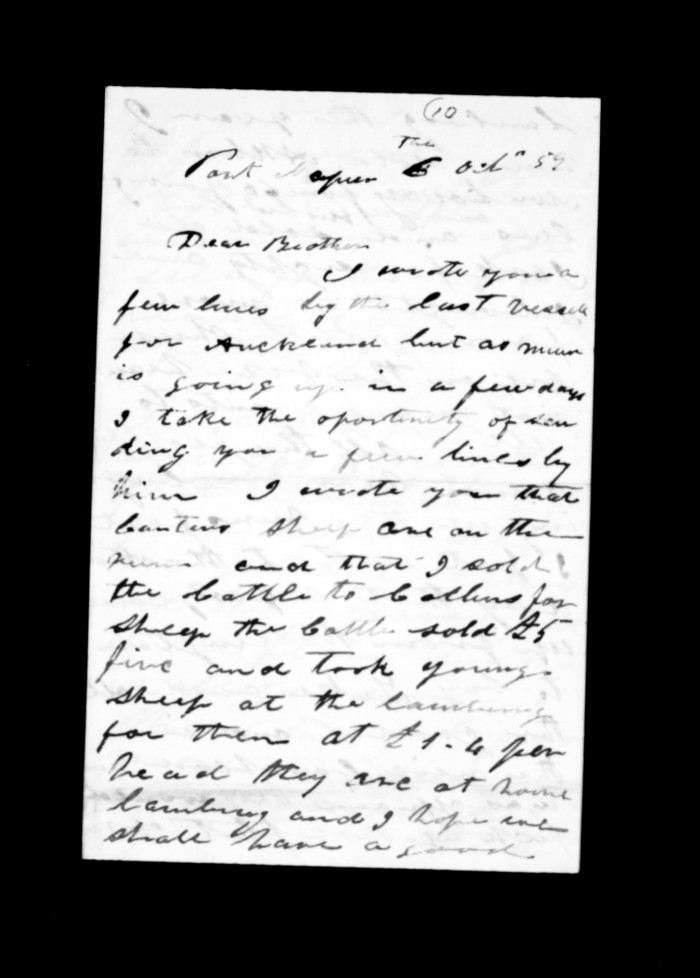 (10
Port Napier The 6 Octr 59
Dear Brother
I wrote you a
few lines by the last vessel
for Auckland but as
is going up in a few days
I take the oportunity of sen
ding you a few lines by
him I wrote you that
sheep are on the
run and that I sold
the Cattle to Collins for
sheep the Cattle sold £5
five and took young
sheep at the lambing
for them at £1.4 per
head they are at home
lambing and I hope we
shall have a good